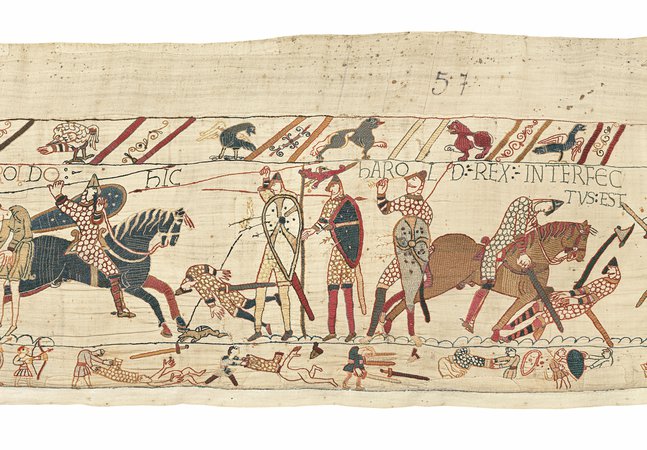 57
ROLDO: hIC hAROLD: REX: INTERFEC
TVS: EST